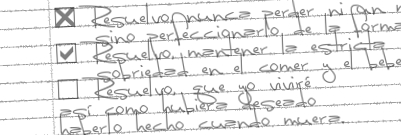 Resuelvo, nunca perder ni un
sino perfeccionarlo de la forma
Resuelvo, mantener la estricta
sobriedad en el comer y el bebe
Resuelvo, que yo viviré
así como hubiera deseado
haberlo hecho cuando muera.